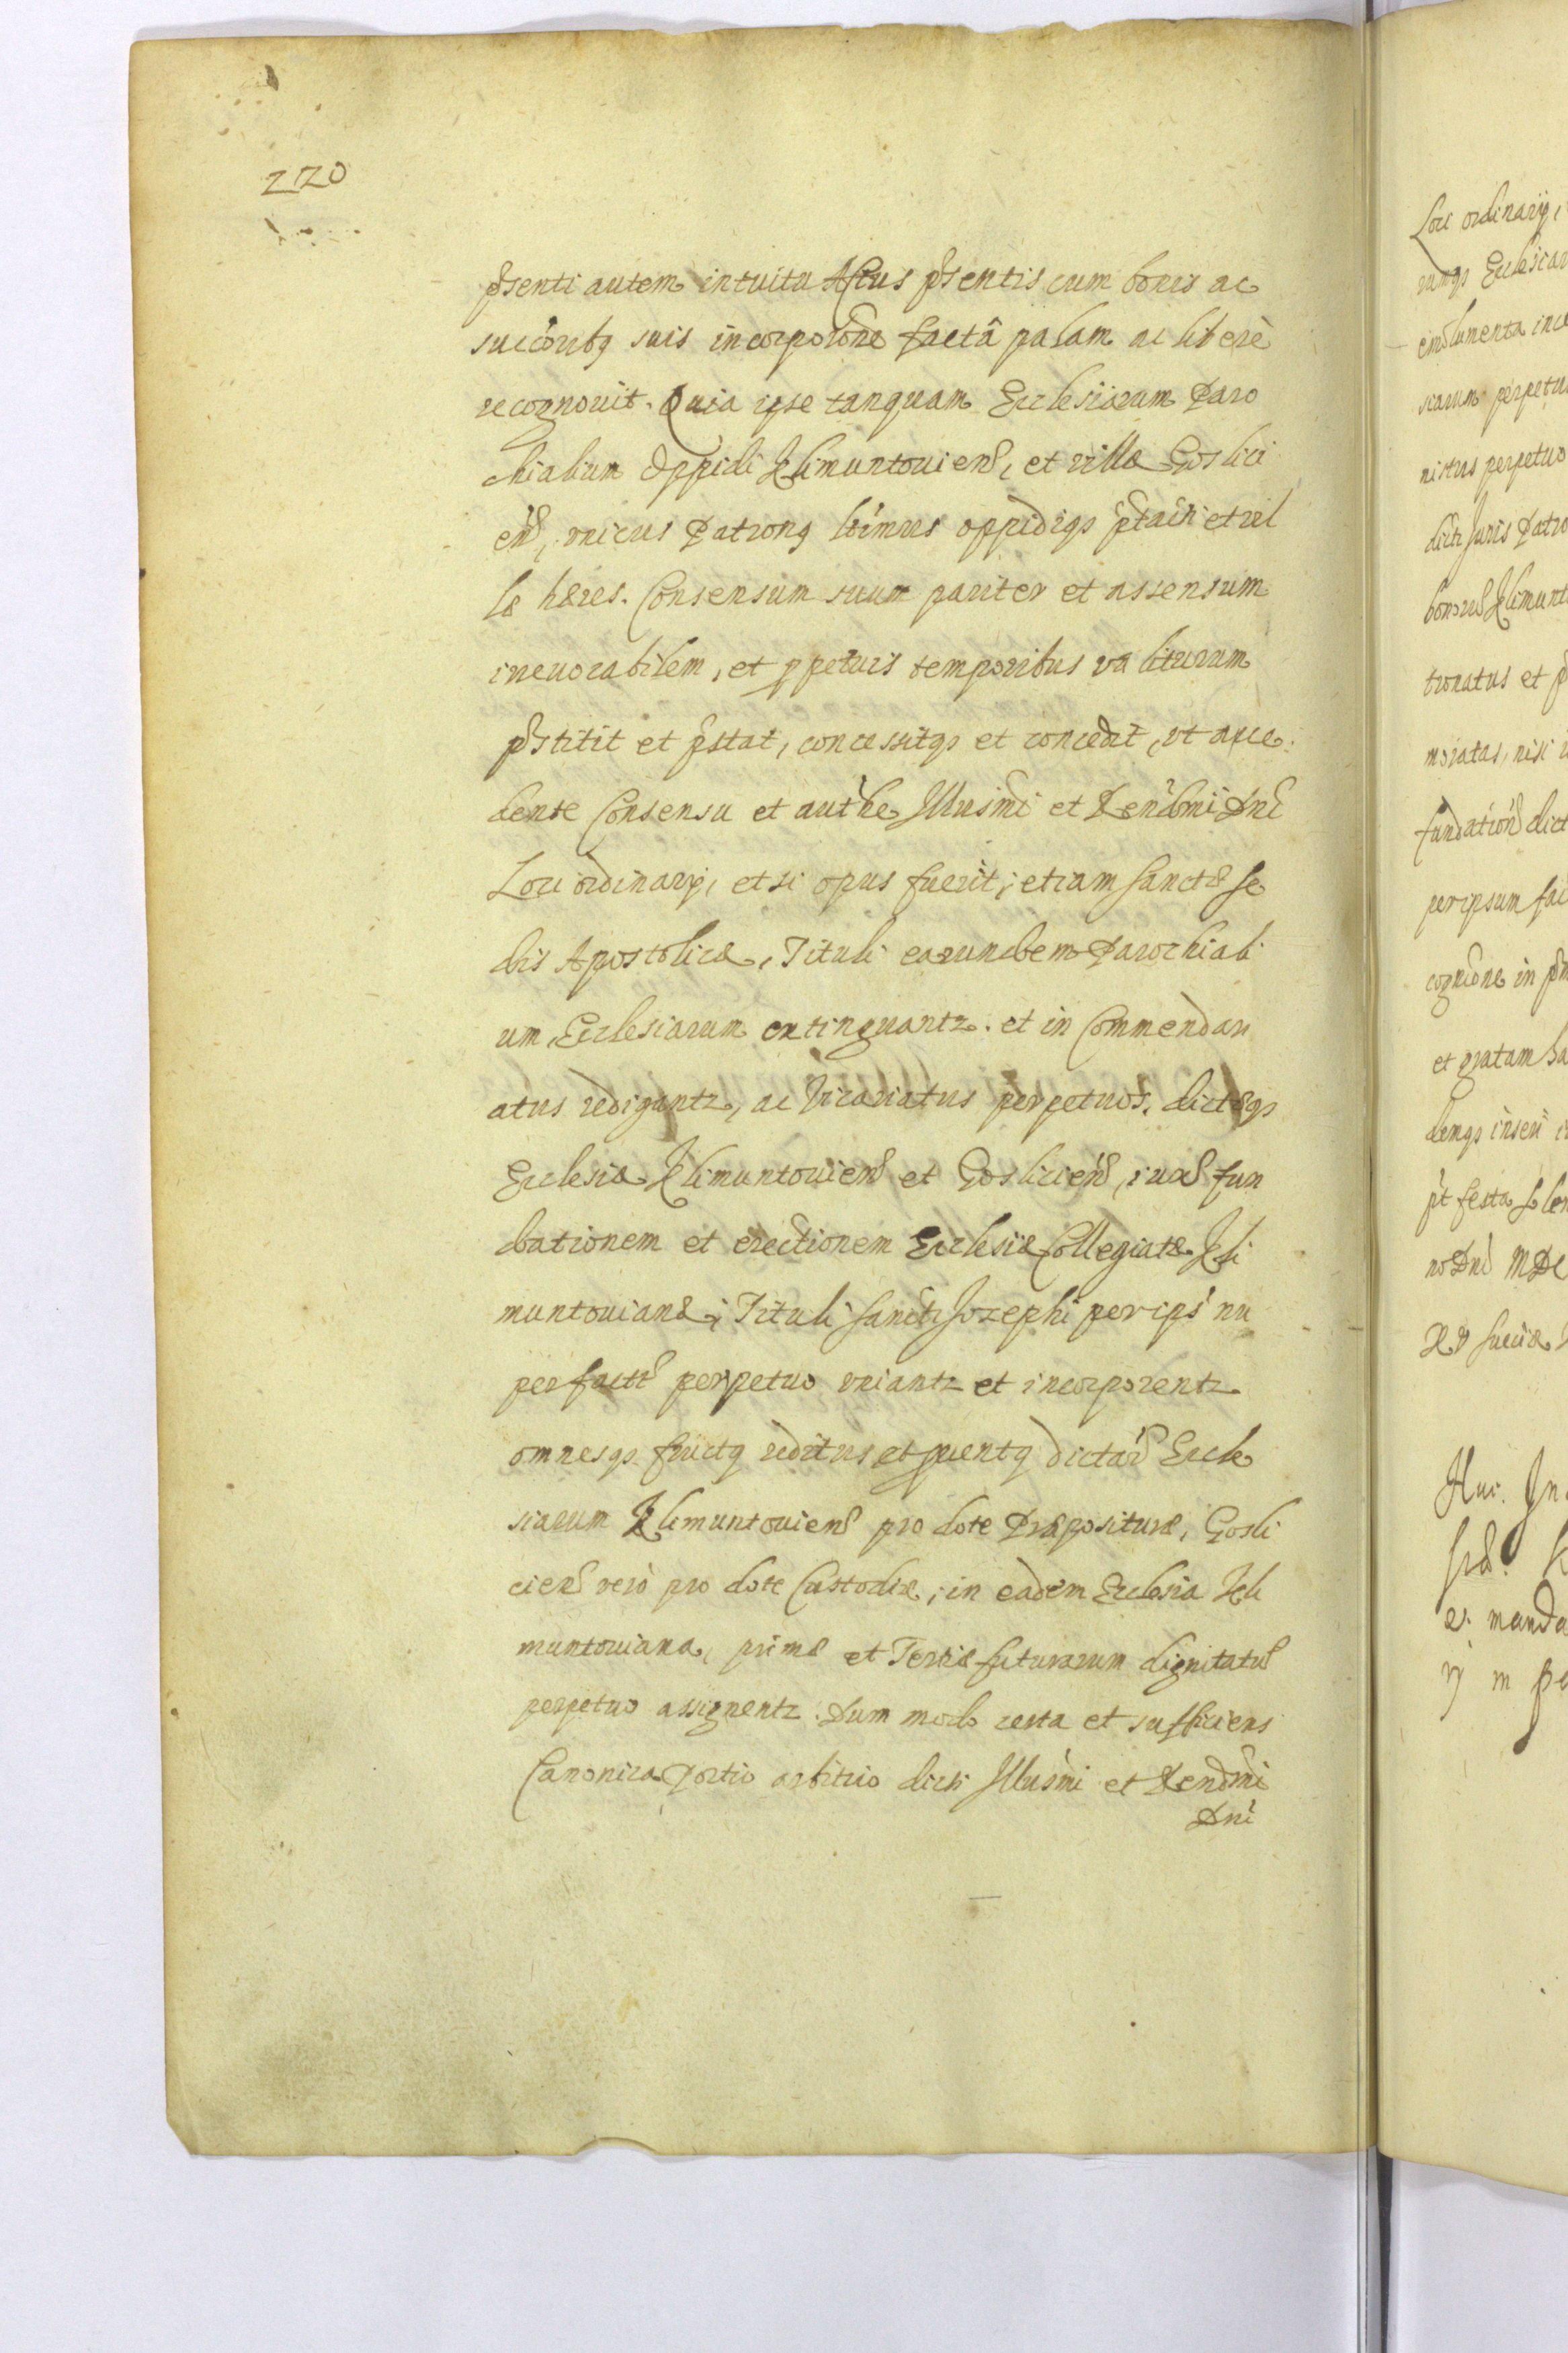 220
pñsenti autem intuitu Actus pñsentis cum bonis ac
succoribq suis incorporõne factâ palam ac liberè
recognouit. Quia ipse tanquam Ecclesiarum Paro
chialium Oppidi Klimuntouieñ, et villæ Gosłici
eñ, vnicus Patronq oppidiqȝ et vil
læ hæres. Consensum suum pariter et assensum
irreuocabilem, et ꝑpetuis temporibus valiturum
pr̃stitit et pr̃stat, concessitqȝ et concedit, vt acce
dente Consensu et auth̃e Illusm̃i et Renđmi Dñi
Loci ordinarij, et si opus fuerit, etiam Sanctæ Se
dis Apostolicæ, Tituli earundem Parochiali
um Ecclesiarum extinguantr. et in Commendari
atus redigantr, ac Vicariatus perpetuos, dictæqȝ
Ecclesiæ Klimuntouieñ et Gosłicieñ, iuxa fun
dationem et erectionem Ecclesiæ Collegiatæ Kli
muntouianæ, Tituli Sancti Josephi per ips nu
per perpetuo vniantr et incorporentr
omnesqȝ fructq reditus et ꝓuentq dictar̃ Eccle
siarum Klimuntouieñ pro dote Præpositurae, Gosli
cieñ verò pro dote Custodiæ, in eadem Ecclesia Kli
muntouiana, primæ et Tertiæ futurarum dignitatũ
perpetuo assignentr. Dum modo certa et sufficiens
Canonica Portio arbitrio dicti Illusm̃i et Renđmi
Dñi
Loci ordinarij,
rumqȝ Ecclesiar
emolumenta
perpetu
nistros perpetuo
dicti Juris Patro
bonorũ Klimunt
tronatus et
moratas, nisi
fundatioñ dict
per ipsum fac
cognicõne in
et gratam ha
denqȝ inseri
pt festa
no Dñi MDC
Sueciæ
Huc. In
manda
in